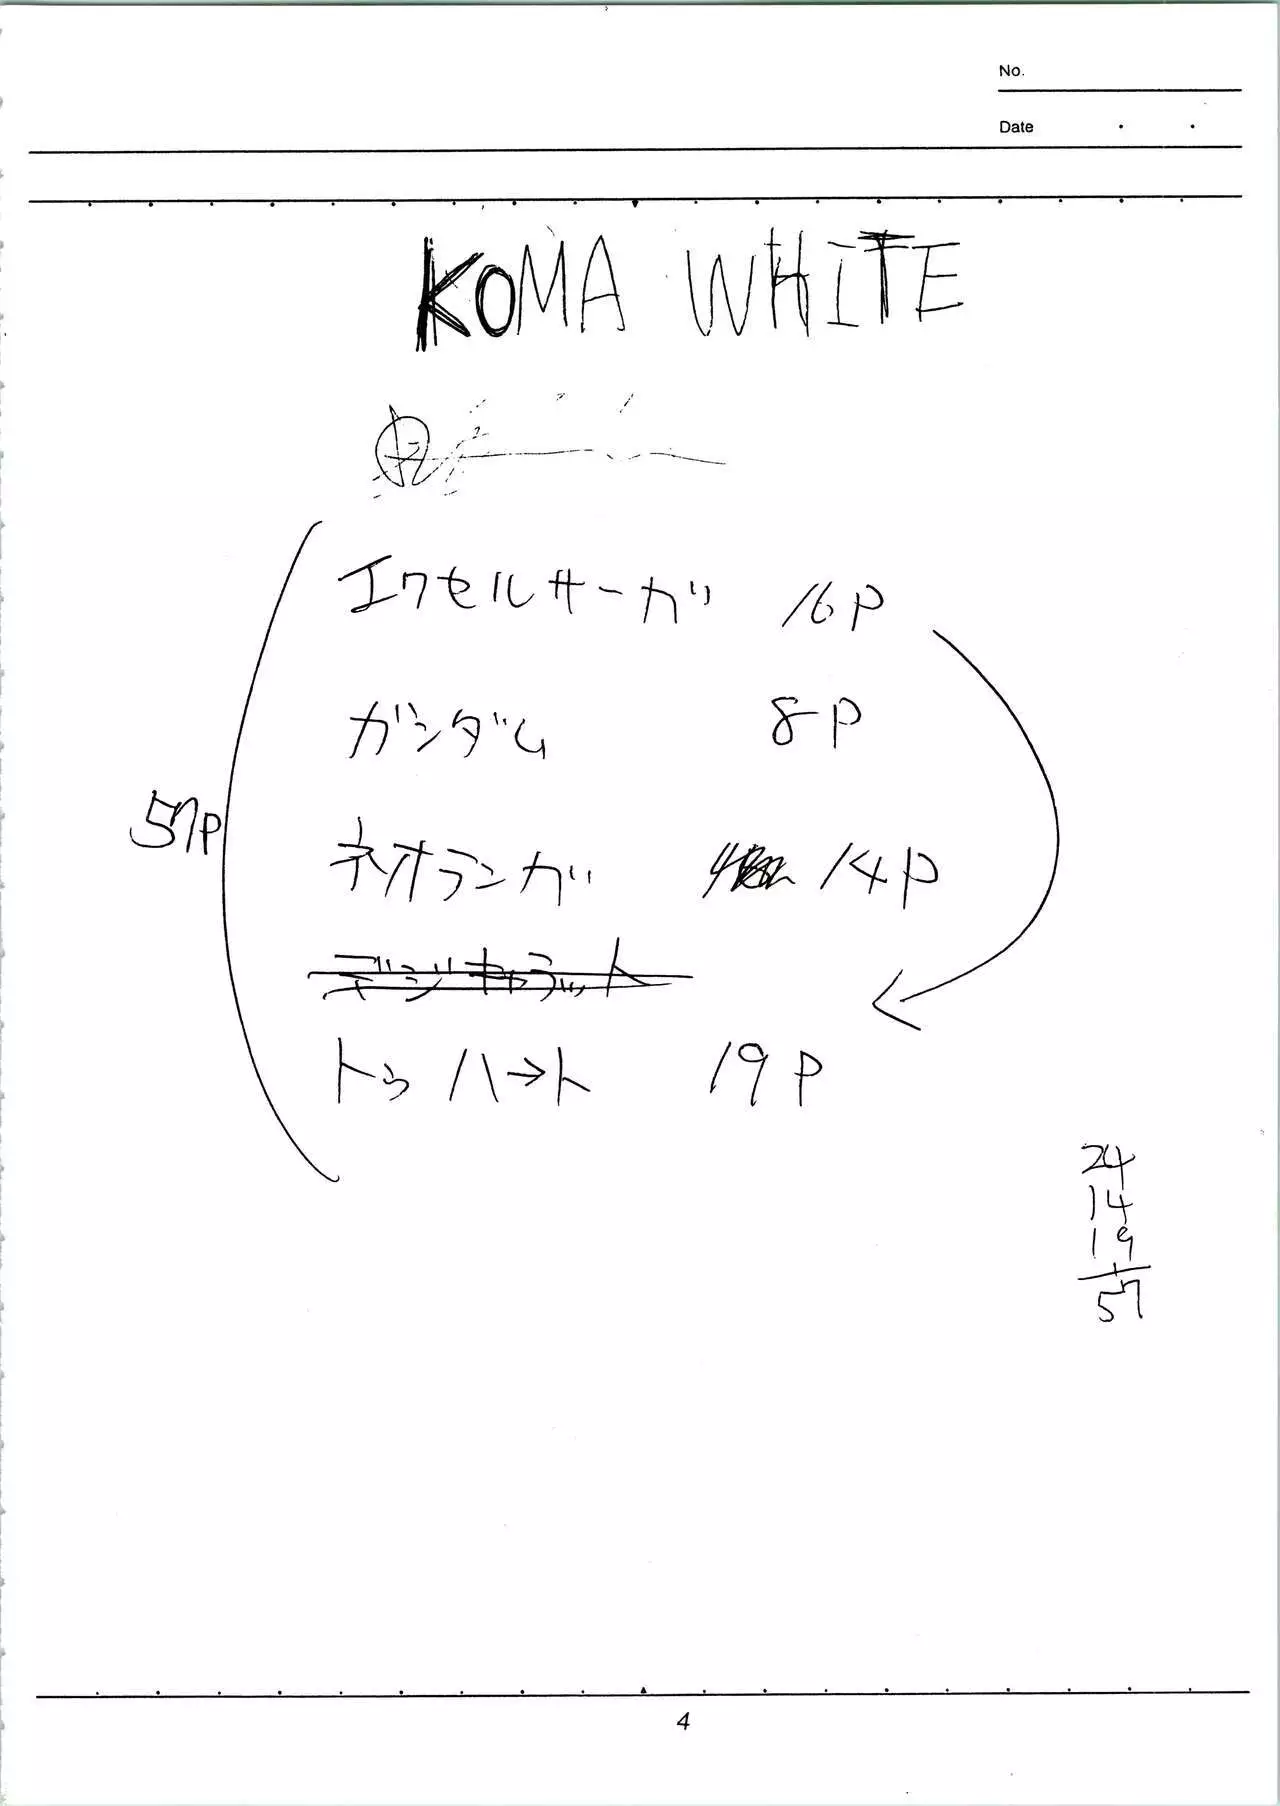 No.
Date
KOMA WHITE
エクセルサーガ 16P
ガンダム 8P
57P
ネオランガ 14P
デジキャラット
トゥハート 19P
24
14
19
57
4